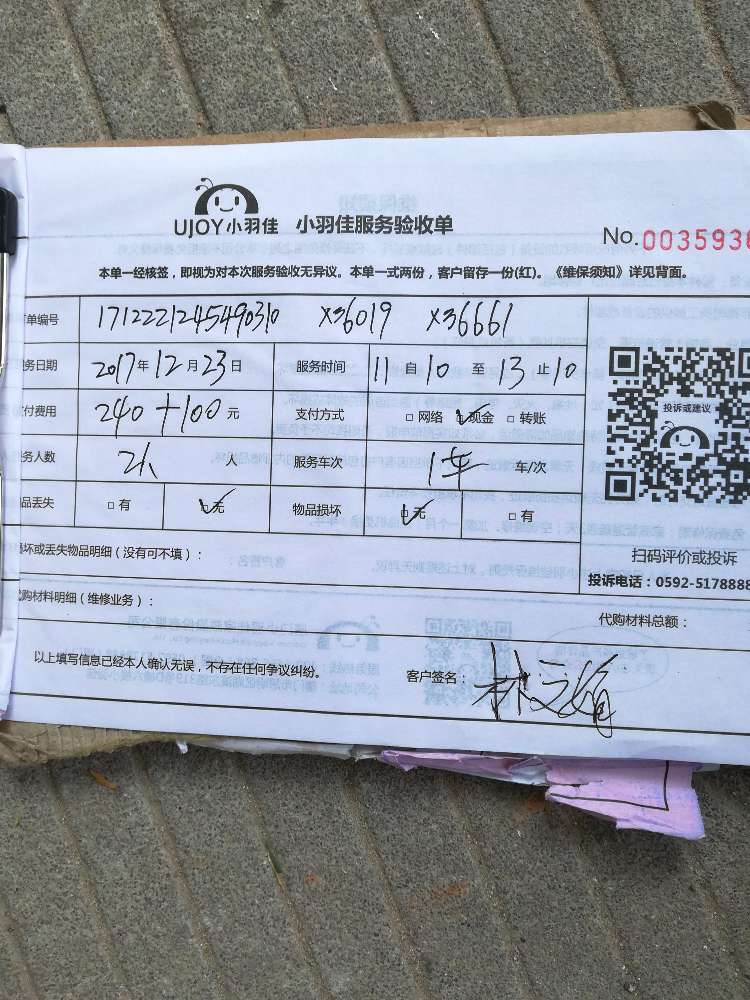 UJOY小羽佳 小羽佳服务验收单
No.0035936
本单一经核签，即视为对本次服务验收无异议。本单一式两份，客户留存一份(红)。《维保须知》详见背面。
单编号 1712221245490310 X36019 X36661
务日期 2017年12月23日 服务时间 11自10至13止10
付费用 240+100元 支付方式 □网络 □现金 □转账
务人数 2人 人 服务车次 1车 车/次
品丢失 □有 □无 物品损坏 □无 □有
投诉或建议
坏或丢失物品明细（没有可不填）：
扫码评价或投诉
投诉电话：0592-5178888
代购材料明细（维修业务）：
代购材料总额：
以上填写信息已经本人确认无误，不存在任何争议纠纷。
客户签名：